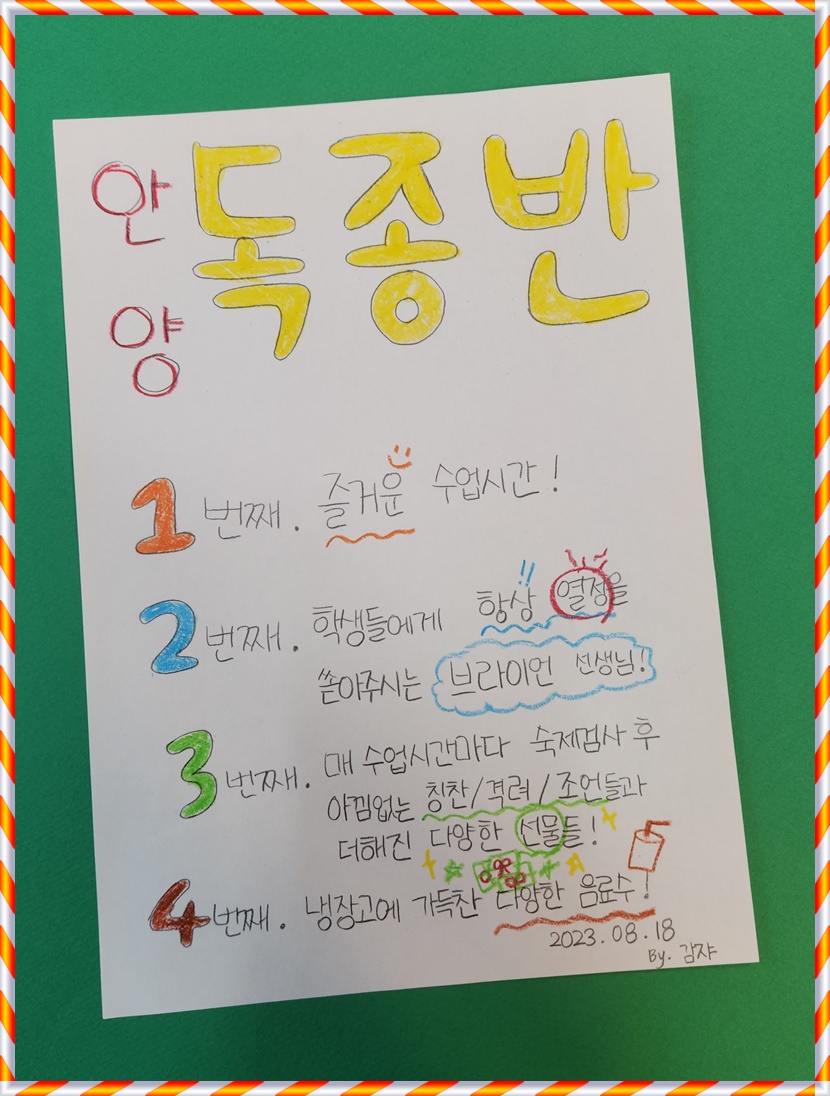 안양 독종반
1번째. 즐거운 수업시간!
2번째. 학생들에게 항상 열정을
쏟아주시는 브라이언 선생님!
3번째. 매 수업시간마다 숙제검사 후
아낌없는 칭찬/격려/조언들과
더해진 다양한 선물들!
4번째. 냉장고에 가득찬 다양한 음료수!
2023.08.18
By. 감쟈